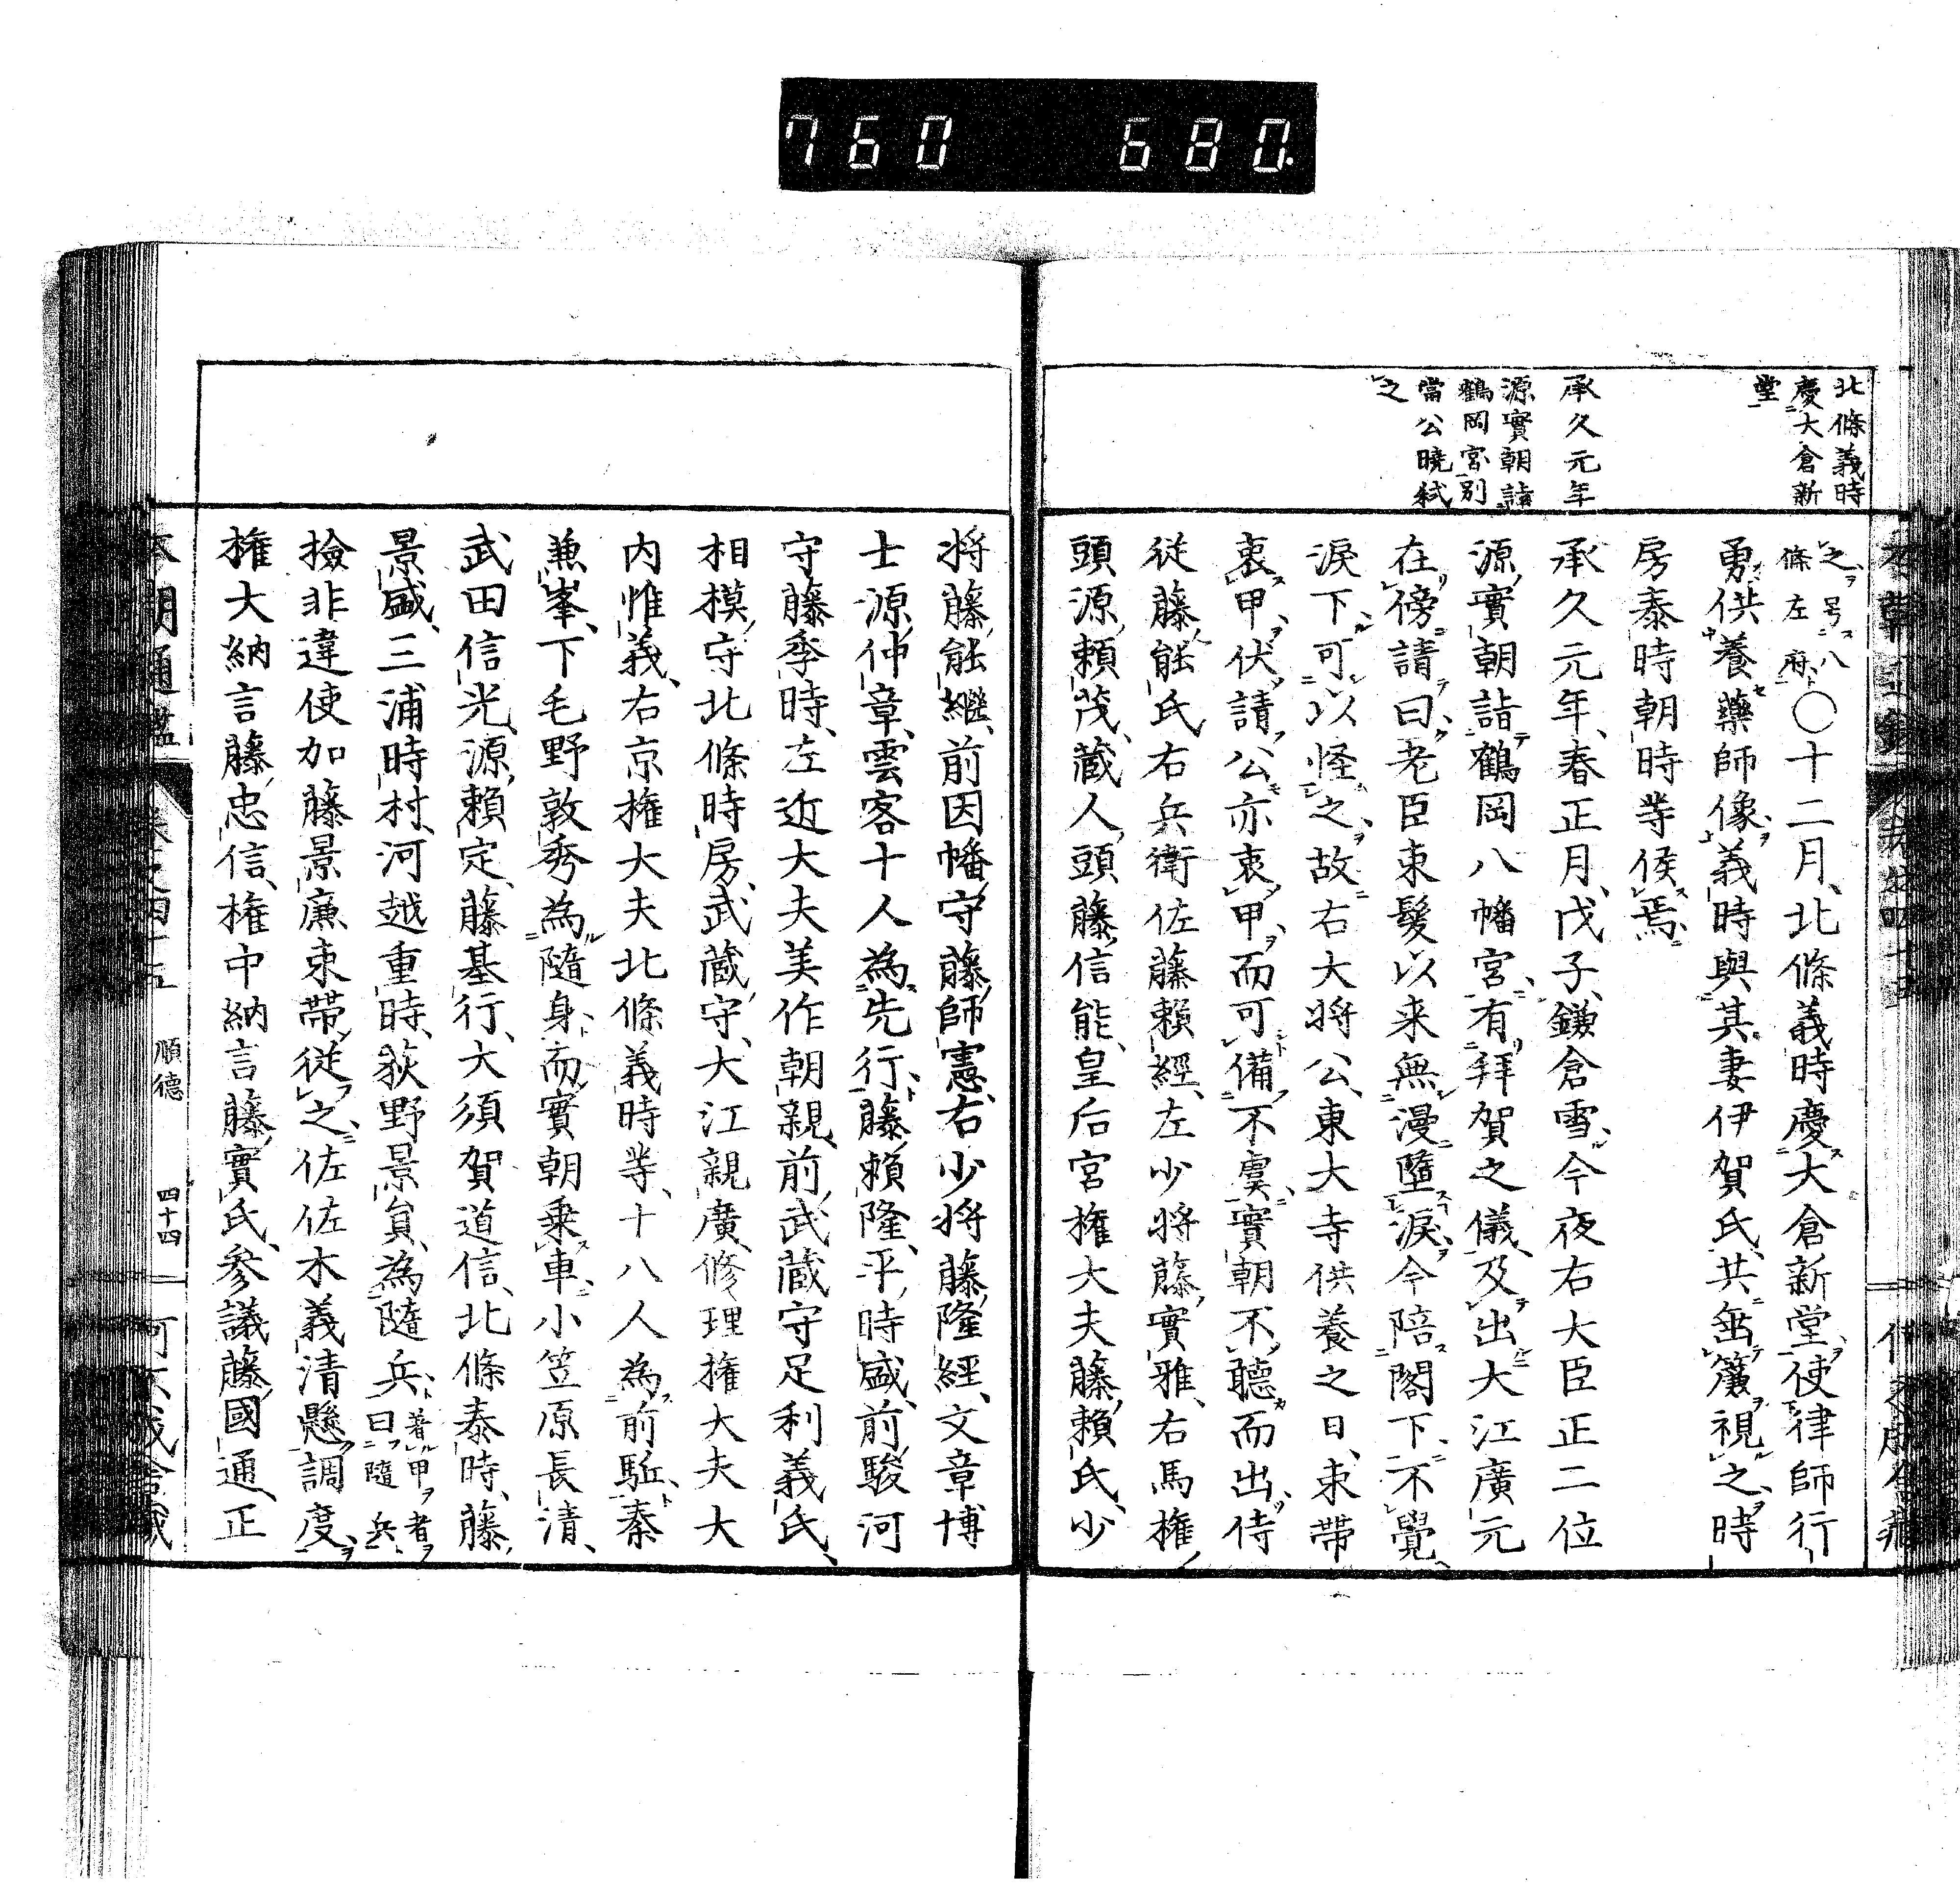 760 680.
北條義時
慶大倉新
堂
承久元年
源實朝詣
鶴岡宮別
當公曉弒
之
之号八
條左府
〇十二月、北條義時慶大倉新堂使律師行
勇供養藥師像義時與其妻伊賀氏、共出簾視之時
房泰時朝時等侯焉
承久元年、春正月、戊子、鎌倉雪、今夜右大臣正二位
源實朝詣鶴岡八幡宮、有拜賀之儀、及出大江廣元
在傍請曰、老臣束髮以来無漫墮淚今陪閣下不覺
淚下可以怪之故右大將公、東大寺供養之日、束帶
衷甲、伏請公亦衷甲而可備不虞、實朝不聽而出、侍
從藤能氏右兵衛佐藤賴經、左少将藤實雅、右馬權
頭源賴茂、蔵人頭藤信能、皇后宮權大夫藤賴氏、少
将藤能繼、前因幡守藤師憲、右少将藤隆經、文章博
士源仲章、雲客十人為先行、藤賴隆、平時盛、前駿河
守藤季時、左近大夫美作朝親、前武蔵守足利義氏、
相模守北條時房、武蔵守、大江親廣、修理權大夫大
内惟義、右京權大夫北條義時等、十八人為前駈、秦
兼峯、下毛野敦秀為隨身、而實朝乗車、小笠原長清、
武田信光、源賴定、藤基行、大須賀道信、北條泰時、藤
景盛、三浦時村、河越重時、荻野景員、為隨兵、
著甲者
曰隨兵、
撿非違使加藤景廉束帶、從之、佐佐木義清懸調度、
權大納言藤忠信、權中納言藤實氏、參議藤國通、正
本朝通鑑
順德
四十四